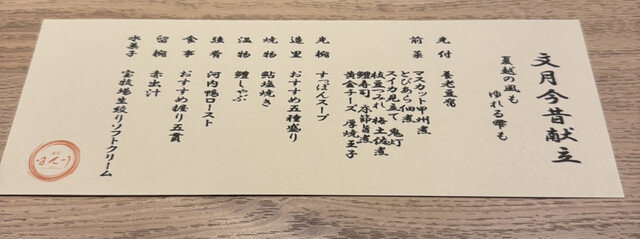 文月今昔献立
夏越の風も
ゆれる雫も
先付 養老豆腐
前菜 マスカット甲州煮
とびあら佃煮
スイカ見立て 鬼灯
枝豆つみれ 梅土佐煮
鱧寿司
黄金チーズ 厚焼玉子
先椀 すっぽんスープ
造里 おすすめ五種盛り
焼物 鮎塩焼き
温物 鱧しゃぶ
強肴 河内鴨ロースト
食事 おすすめ握り五貫
留椀 赤出汁
水菓子 宝牧場生絞りソフトクリーム